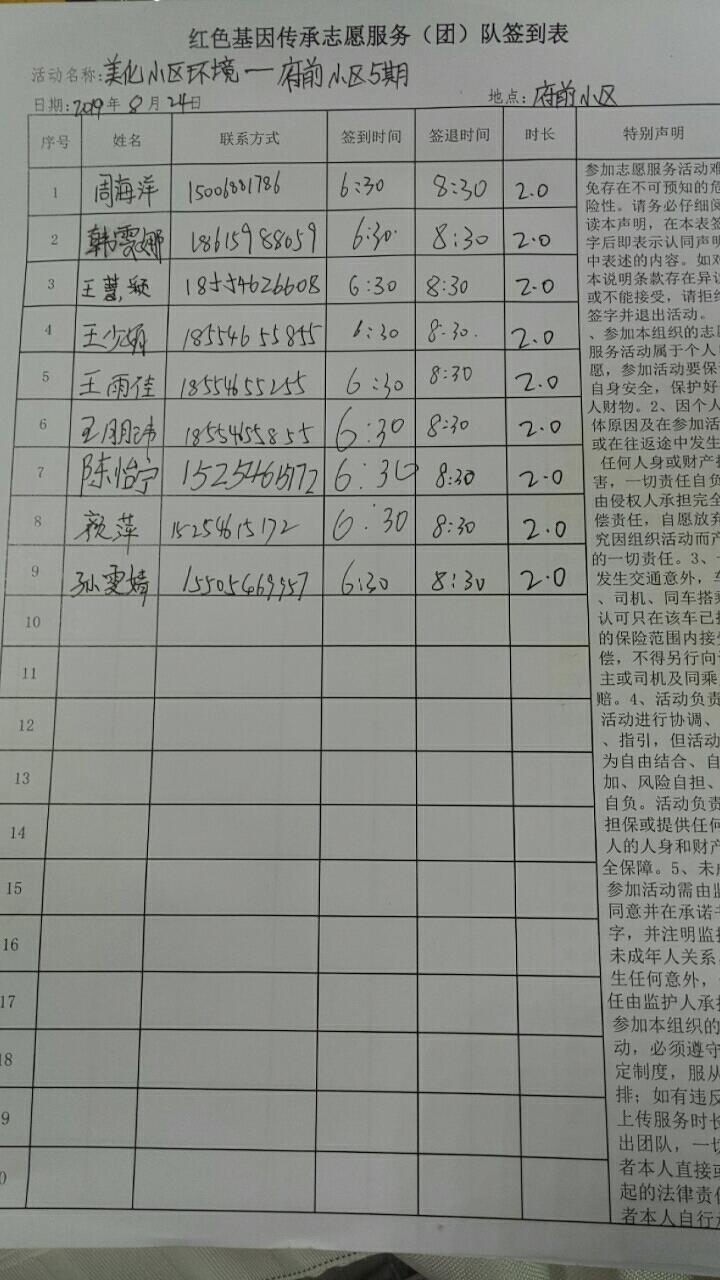 红色基因传承志愿服务（团）队签到表
活动名称:美化小区环境一府前小区5期
日期:2019年8月24日 地点:府前小区
序号 姓名 联系方式 签到时间 签退时间 时长 特别声明
1 周海洋 15006881786 6:30 8:30 2.0
2 韩雯娜 18615988659 6:30. 8:30 2.0
3 王慧颖 18554626608 6:30 8:30 2.0
4 王少娟 18554655855 6:30 8:30. 2.0
5 王雨佳 18554655255 6:30 8:30 2.0
6 18554655855 6:30 8:30 2.0
7 陈怡宁 15254615172 6:30 8:30 2.0
8 颜萍 15254615172 6:30 8:30 2.0
9 孙雯婧 15505469957 6:30 8:30 2.0
10
11
12
13
14
15
16
17
18
9
0
参加志愿服务活动难
免存在不可预知的危
险性。请务必仔细阅
读本声明，在本表签
字后即表示认同声明
中表述的内容。如对
本说明条款存在异议
或不能接受，请拒绝
签字并退出活动。
、参加本组织的志愿
服务活动属于个人自
愿，参加活动要保证
自身安全，保护好
人财物。2、因个人
体原因及在参加活
或在往返途中发生
任何人身或财产损
害，一切责任自负
由侵权人承担完全
偿责任，自愿放弃
究因组织活动而产
的一切责任。3、
发生交通意外，车
、司机、同车搭乘
认可只在该车已投
的保险范围内接受
偿，不得另行向
主或司机及同乘
赔。4、活动负责
活动进行协调、
、指引，但活动
为自由结合、自
加、风险自担、
自负。活动负责
担保或提供任何
人的人身和财产
全保障。5、未成
参加活动需由监
同意并在承诺书
字，并注明监护
未成年人关系
生任何意外，
任由监护人承担
参加本组织的
动，必须遵守
定制度，服从
排；如有违反
上传服务时长
出团队，一切
者本人直接或
起的法律责任
者本人自行承